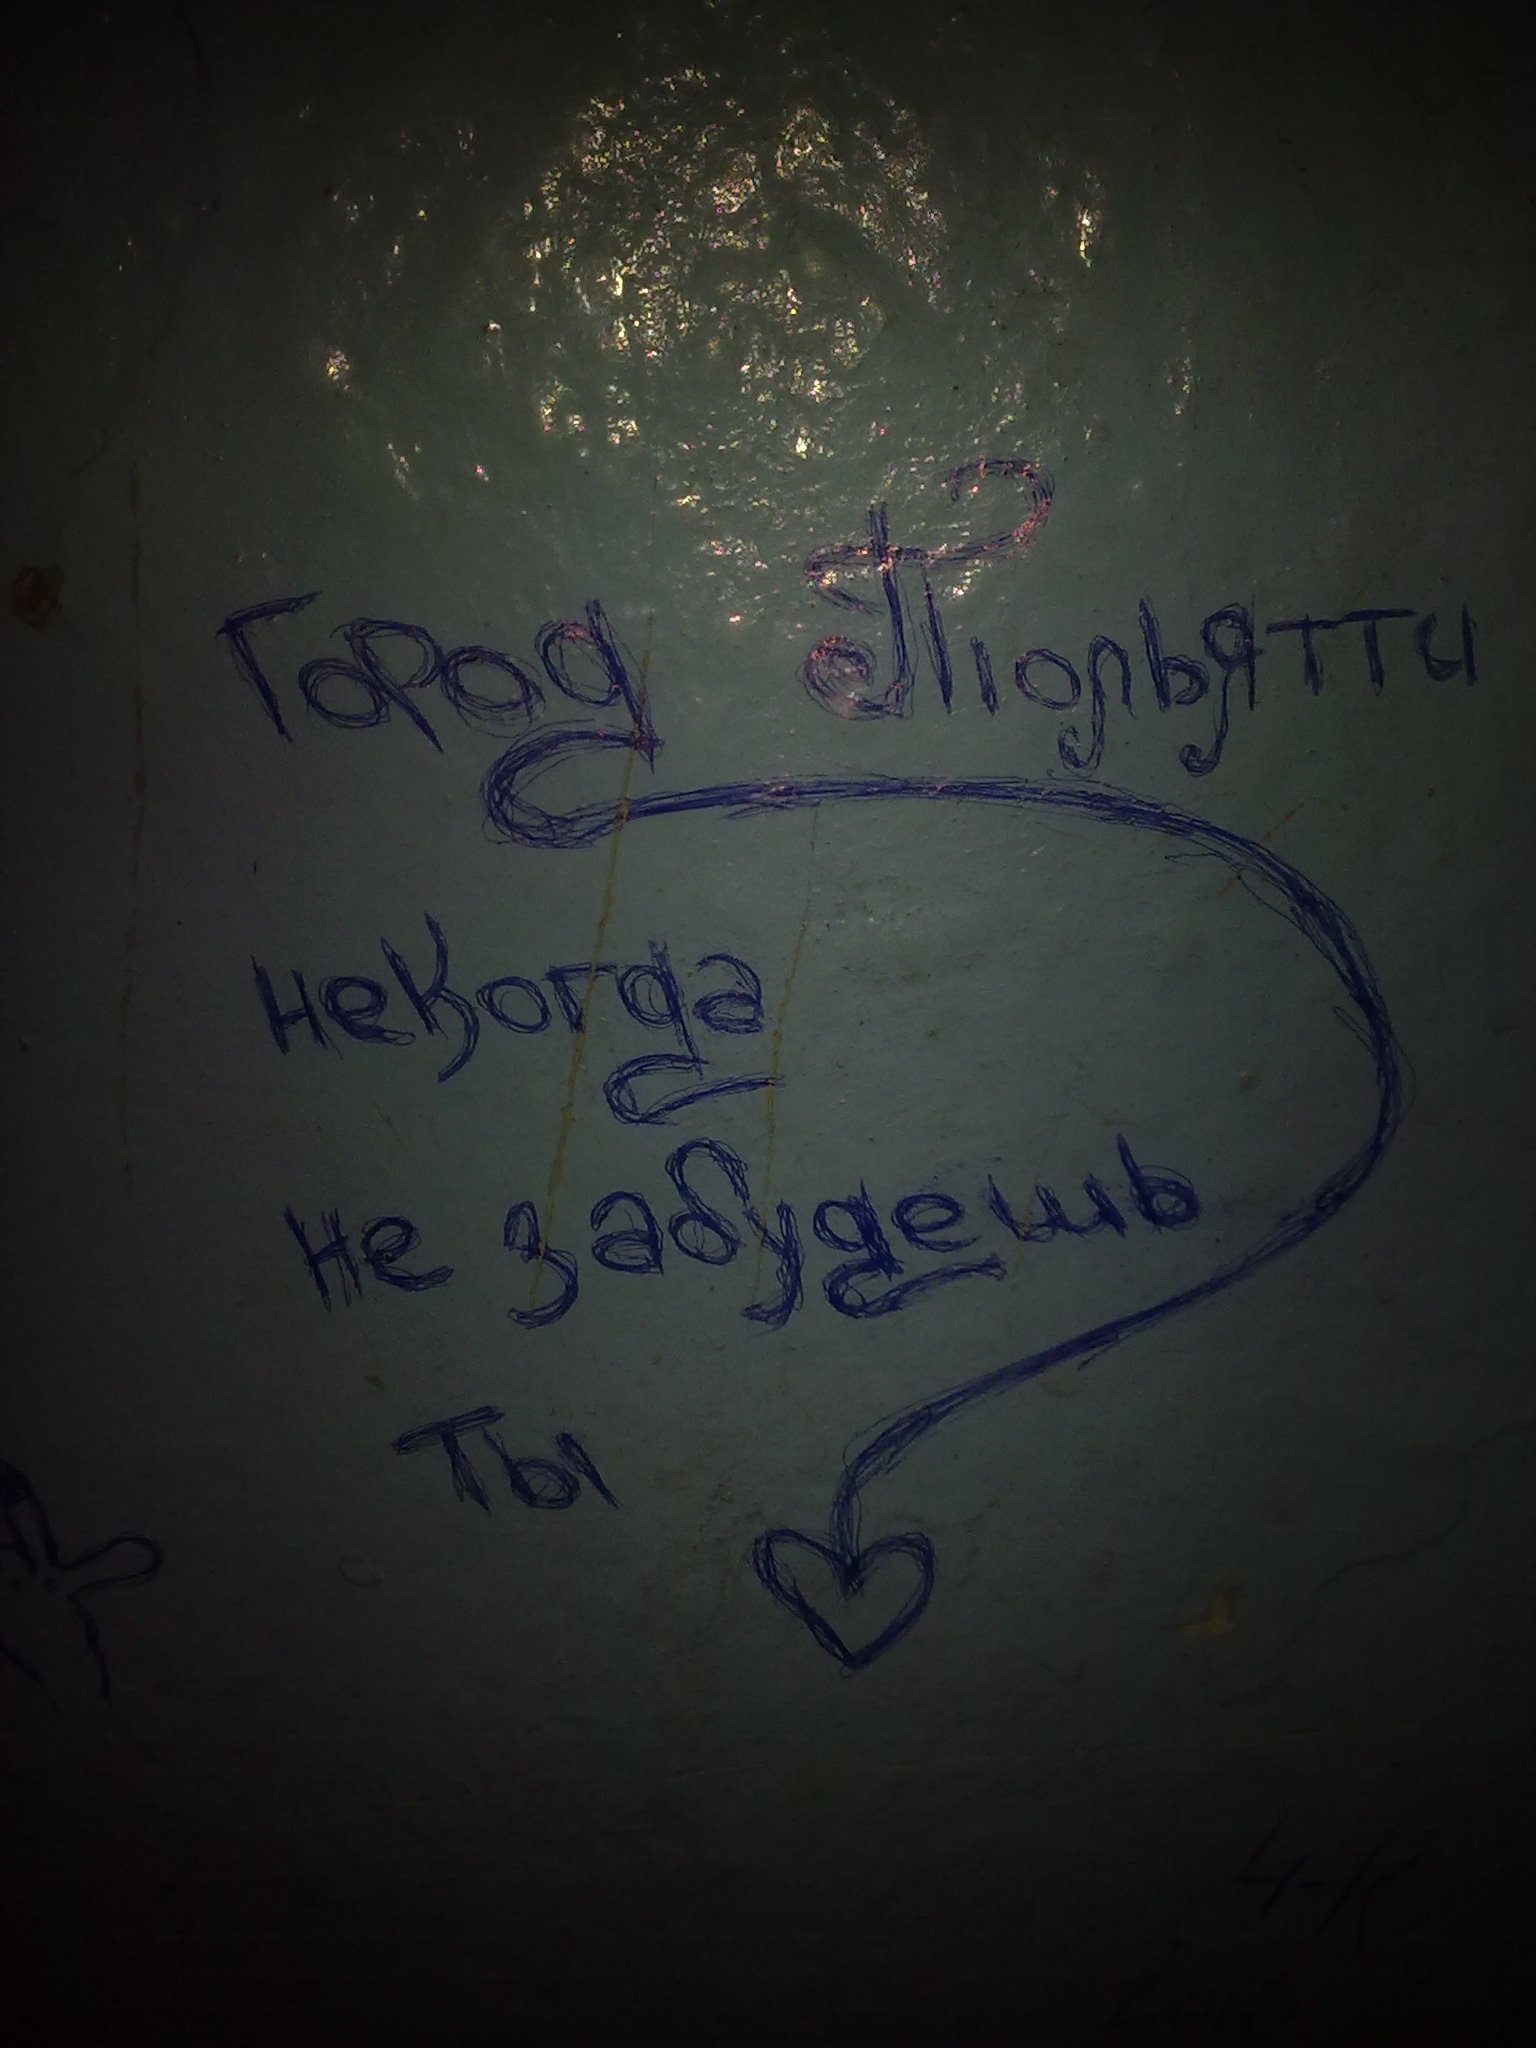 Город Тюльятти
некогда
не забудешь
ты
4-К